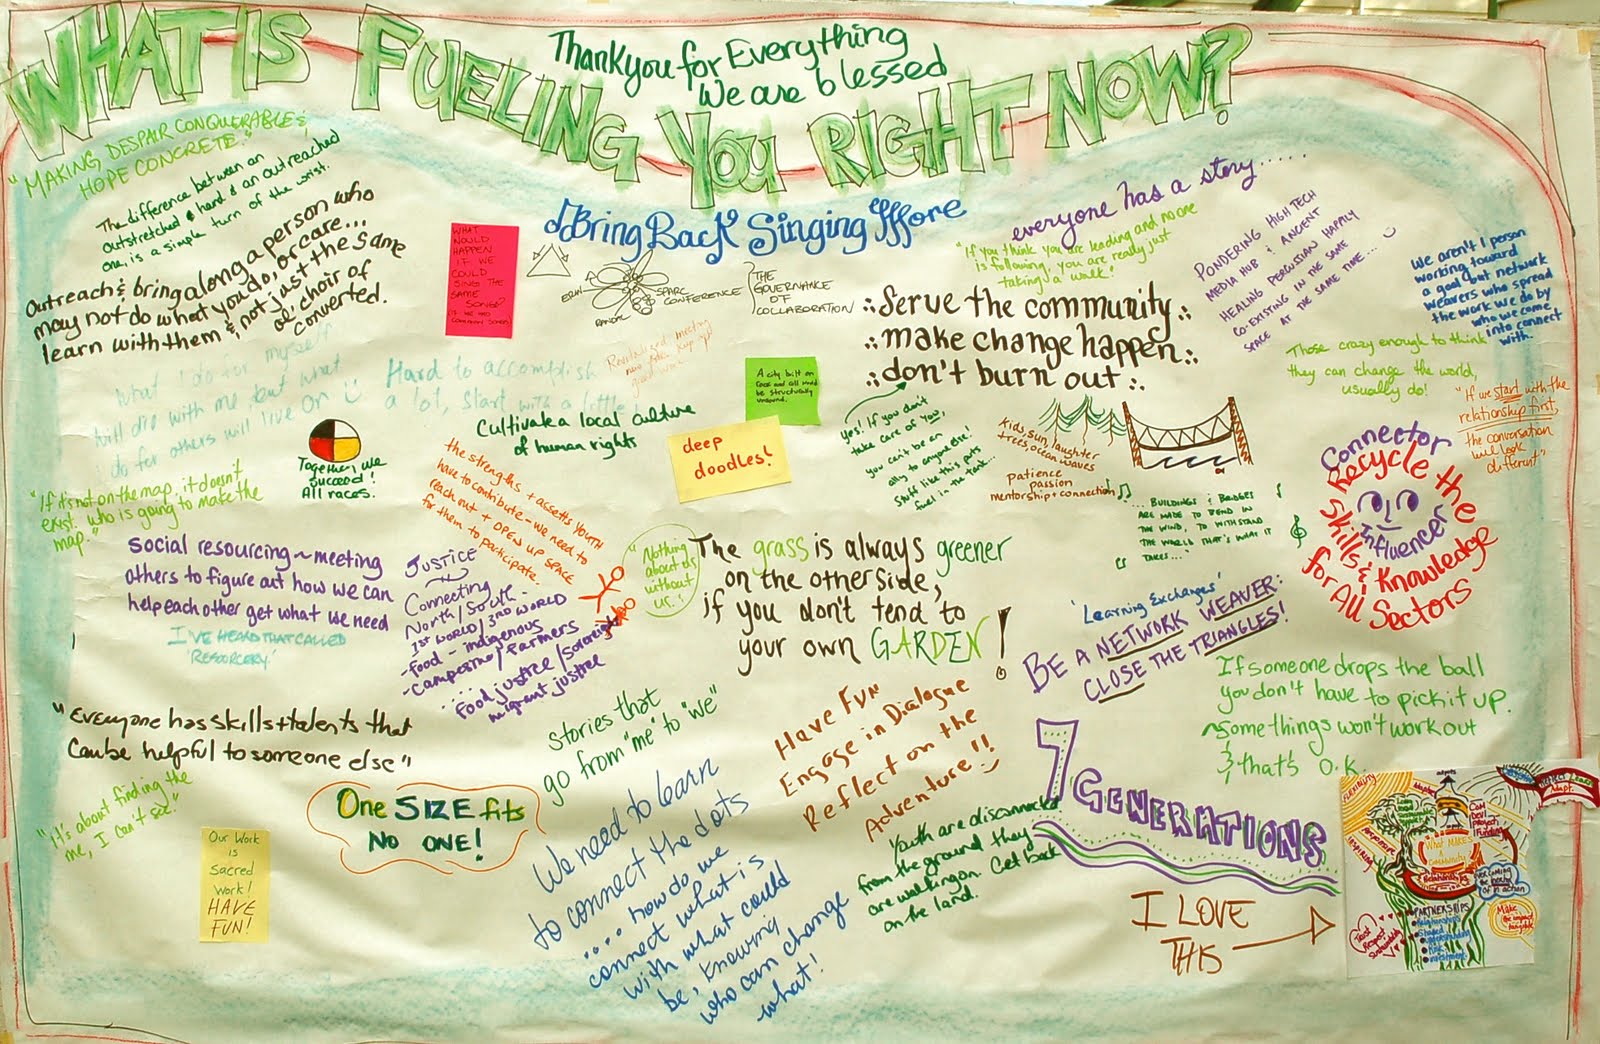 WHAT IS FUELING YOU RIGHT NOW?
Thankyou for Everything
We are blessed
"MAKING DESPAIR CONQUERABLE &
HOPE CONCRETE."
The difference between an
outstretched hand & an outreached
one, is a simple turn of the wrist.
Outreach & bring along a person who
may not do what you do, or care...
learn with them & not just the same
ol' choir of
converted.
Bring Back Singing
WHAT
WOULD
HAPPEN
IF WE
COULD
SING THE
SAME
SONGS?
SPARC
CONFERENCE
THE
GOVERNANCE
OF
COLLABORATION
everyone has a story.....
"If you think you are leading and no one
is following, you are really just
taking a walk!"
PONDERING HIGH TECH
MEDIA HUB & ANCIENT
HEALING PERCUSSIAN HAPPILY
CO-EXISTING IN THE SAME
SPACE AT THE SAME TIME...
We aren't 1 person
working toward
a goal but network
weavers who spread
the work we do by
who we come
into connect
with.
Serve the community
make change happen
don't burn out
Those crazy enough to think
they can change the world,
usually do!
"If we start with the
relationship first,
the conversation
will look
different"
What I do for myself
will die with me, but what
i do for others will live on
Hard to accomplish
a lot, start with a little
A city built on
Cultivate a local culture
of human rights
deep
doodles!
yes! If you don't
take care of you,
you can't be an
ally to anyone else!
Stuff like this puts
fuel in the tank...
Kids, sun, laughter
trees, ocean waves
Patience
passion
mentorship + connection
... BUILDINGS & BRIDGES
ARE MADE TO BEND IN
THE WIND, TO WITHSTAND
THE WORLD THAT'S WHAT IT
TAKES..."
Connector
Influencer
Recycle the
Skills & Knowledge
for All Sectors
Together we
succeed!
All races.
"If it's not on the map, it doesn't
exist. who is going to make the
map."
the strengths + assetts YOUTH
have to contribute - we need to
reach out + OPEN UP SPACE
for them to participate.
social resourcing ~ meeting
others to figure out how we can
help each other get what we need
I'VE HEARD THAT CALLED
'RESOURCERY'
JUSTICE
Connecting
North/South.
1ST WORLD/3RD WORLD
- Food - indigenous
- Campesino/Farmers
.....
Food justice/Sovereignty
migrant justice
"Nothing
about us
without
us."
The grass is always greener
on the otherside,
if you don't tend to
your own GARDEN!
'Learning Exchanges'
BE A NETWORK WEAVER:
CLOSE THE TRIANGLES!
If someone drops the ball
you don't have to pick it up.
~ Some things won't work out
& that's O.K.
"Everyone has skills + talents that
can be helpful to someone else"
"It's about finding the
me, I can't see."
Our Work
is
Sacred
Work!
HAVE
FUN!
One SIZE fits
NO ONE!
stories that
go from "me" to "we"
We need to learn
to connect the dots
.... how do we
connect what is
with what could
be, knowing
who can change
what!
Have Fun
Engage in Dialogue
Reflect on the
Adventure!!
Youth are disconnected
from the ground they
are walking on. Get back
on the land.
7 GENERATIONS
I LOVE
THIS
FLEXIBILITY
What MAKES
COMMUNITY
Relationships
PARTNERSHIPS
Relationships
Shared
understanding
Risk
Investment
Trust
Respect